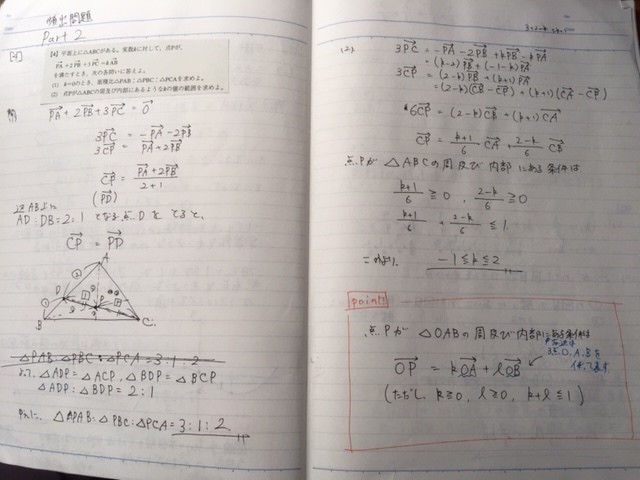 頻出問題
Part 2
[4]
[4] 平面上に△ABCがある。実数kに対して、点Pが、
PA+2PB+3PC=kAB
を満たすとき、次の各問いに答えよ。
(1) k=0のとき、面積比△PAB:△PBC:△PCAを求めよ。
(2) 点Pが△ABCの周及び内部にあるようなkの値の範囲を求めよ。
PA + 2PB + 3PC = 0
3PC = -PA - 2PB
3CP = PA + 2PB
CP = PA + 2PB / 2+1
(PD)
辺AB上に
AD:DB = 2:1 となる点Dをとると、
CP = PD
A
② ① D P B C
△PAB:△PBC:△PCA = 3:1:2
よって △ADP = △ACP, △BDP = △BCP
△ADP:△BDP = 2:1
ゆえに △PAB:△PBC:△PCA = 3:1:2
(2)
3PC = -PA - 2PB + kPB - kPA
= (k-2)PB + (-1-k)PA
3CP = (2-k)PB + (k+1)PA
= (2-k)(CB - CP) + (k+1)(CA - CP)
6CP = (2-k)CB + (k+1)CA
CP = k+1/6 CA + 2-k/6 CB
点Pが △ABCの周及び内部にある条件は
k+1/6 ≧ 0 , 2-k/6 ≧ 0
k+1/6 + 2-k/6 ≦ 1
これより -1 ≦ k ≦ 2
point
点Pが △OABの周及び内部にある条件は
3点O,A,Bを
使って表す
OP = kOA + lOB
(ただし k≧0, l≧0, k+l≦1)